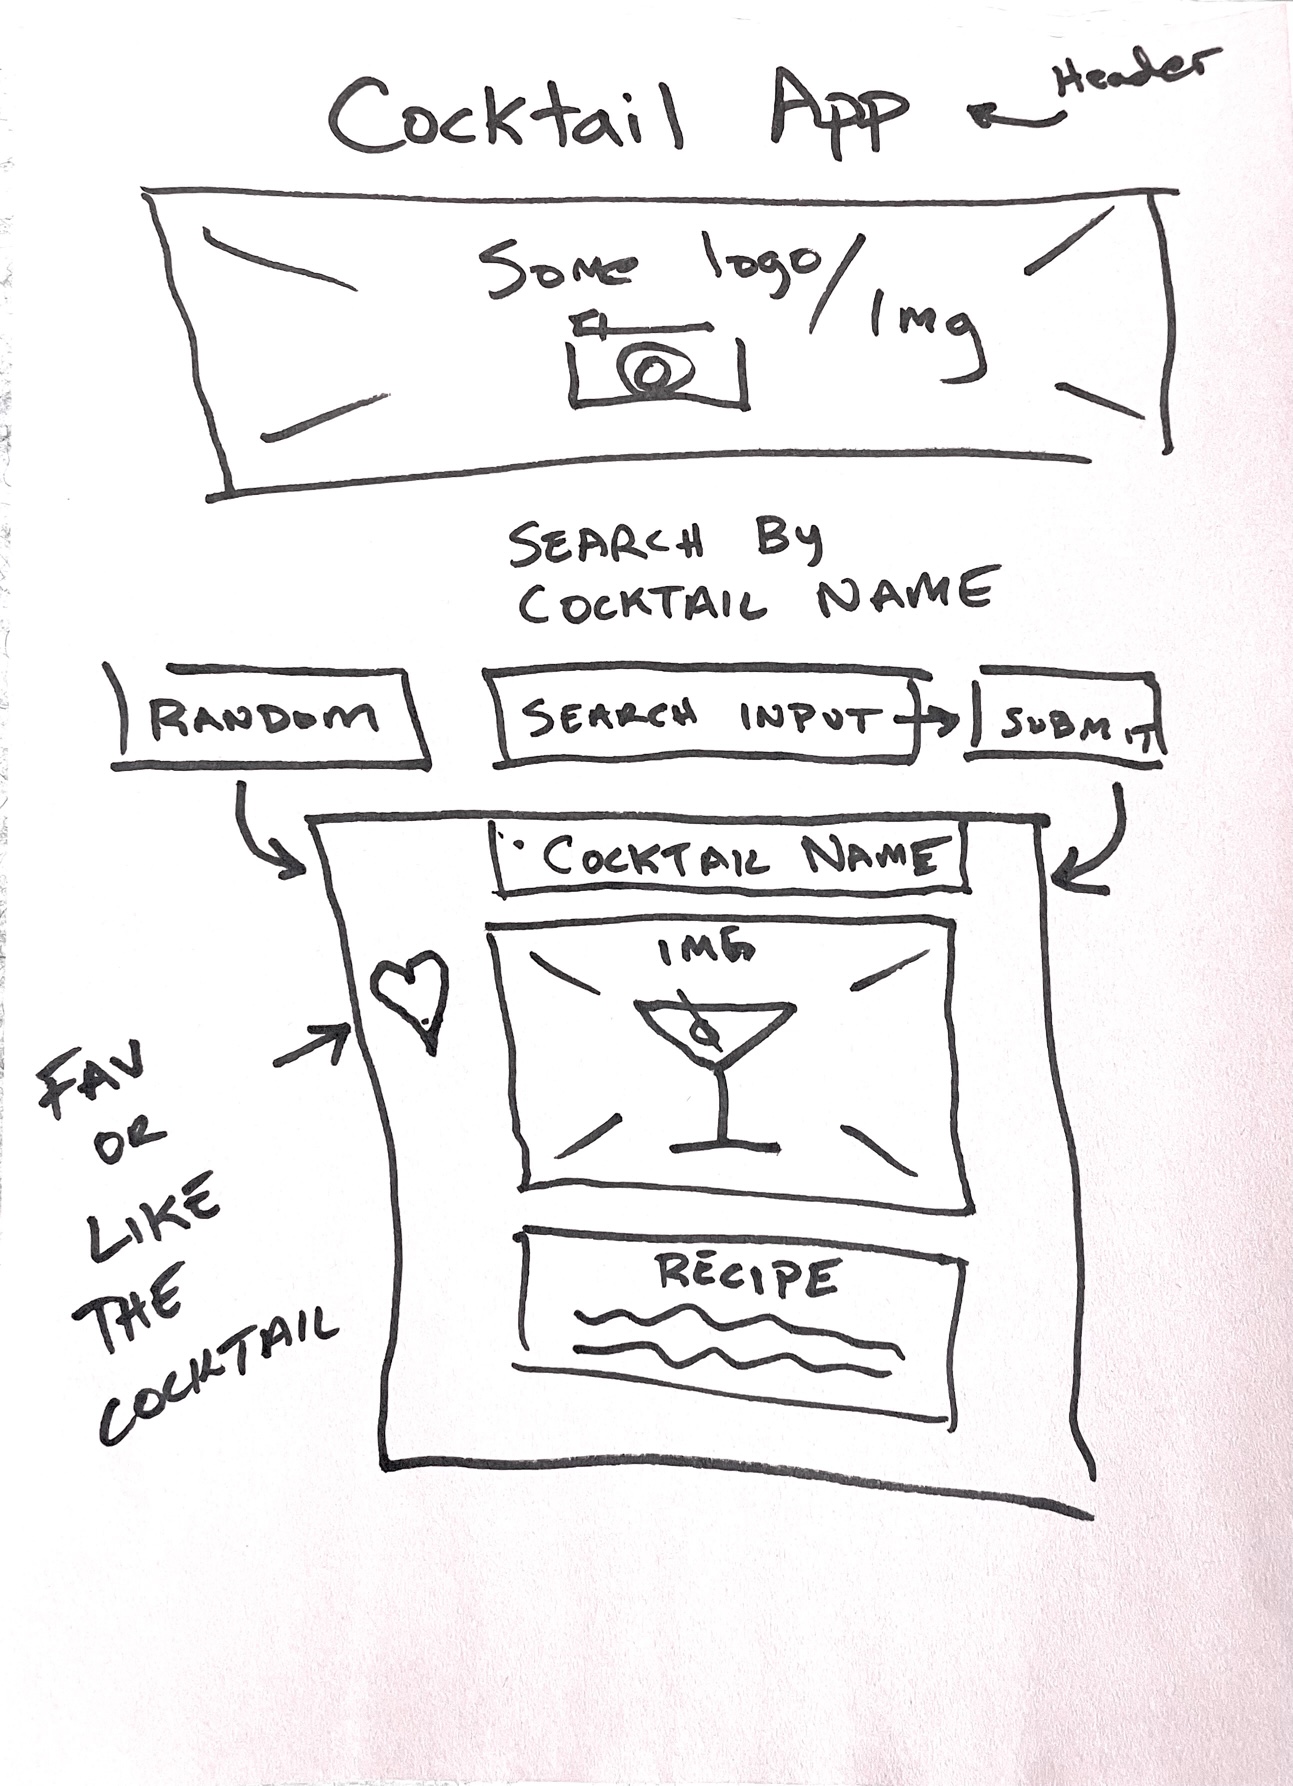 Cocktail App
Header
Some logo/
Img
SEARCH By
COCKTAIL NAME
RANDOM
SEARCH INPUT
SUBMIT
COCKTAIL NAME
IMG
FAV
OR
LIKE
THE
COCKTAIL
RECIPE